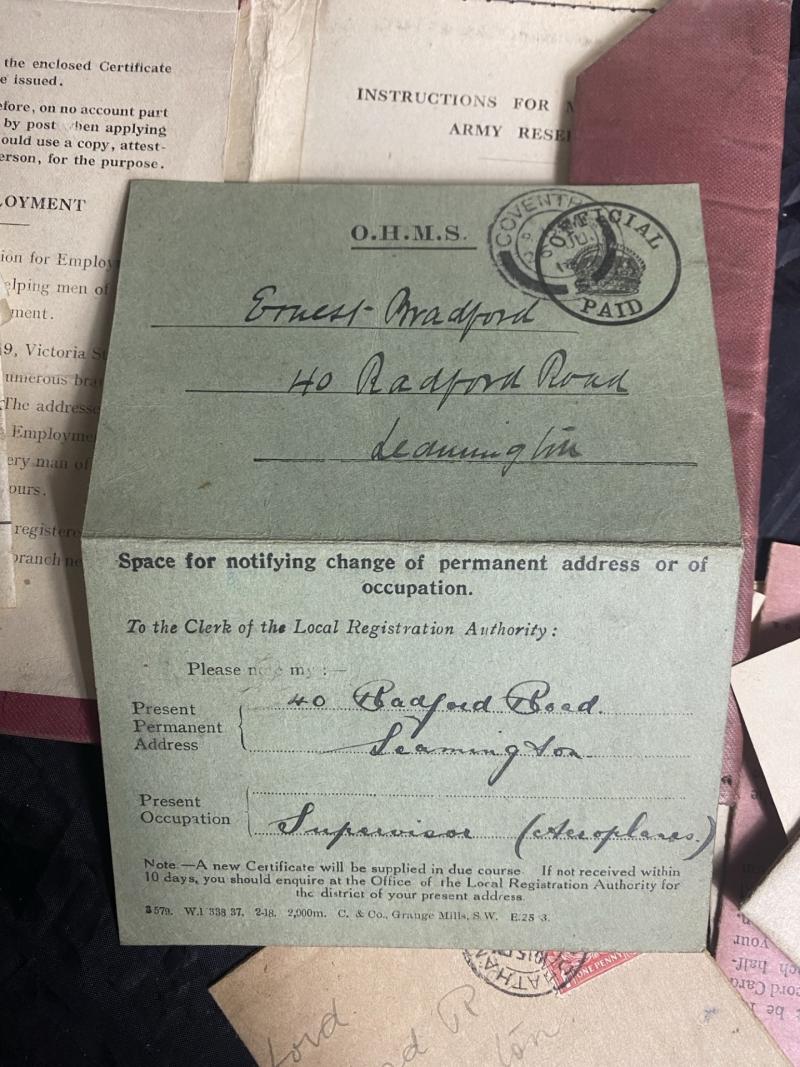 the enclosed Certificate
issued.
on no account part
by post when applying
use a copy, attest-
for the purpose.
INSTRUCTIONS FOR
ARMY
for
helping men of
9, Victoria
The
man of
O.H.M.S.
COVENTRY
OFFICIAL
PAID
Ernest Bradford
40 Radford Road
Leamington
Space for notifying change of permanent address or of
occupation.
To the Clerk of the Local Registration Authority:
Please note my :—
Present
Permanent
Address
40 Radford Road.
Leamington
Present
Occupation
Supervisor (Aeroplanes.)
Note.—A new Certificate will be supplied in due course. If not received within
10 days, you should enquire at the Office of the Local Registration Authority for
the district of your present address.
2-18. 2,000m. C. & Co., Grange Mills, S.W. E.25 3.
ONE PENNY
your
half-
Card
be